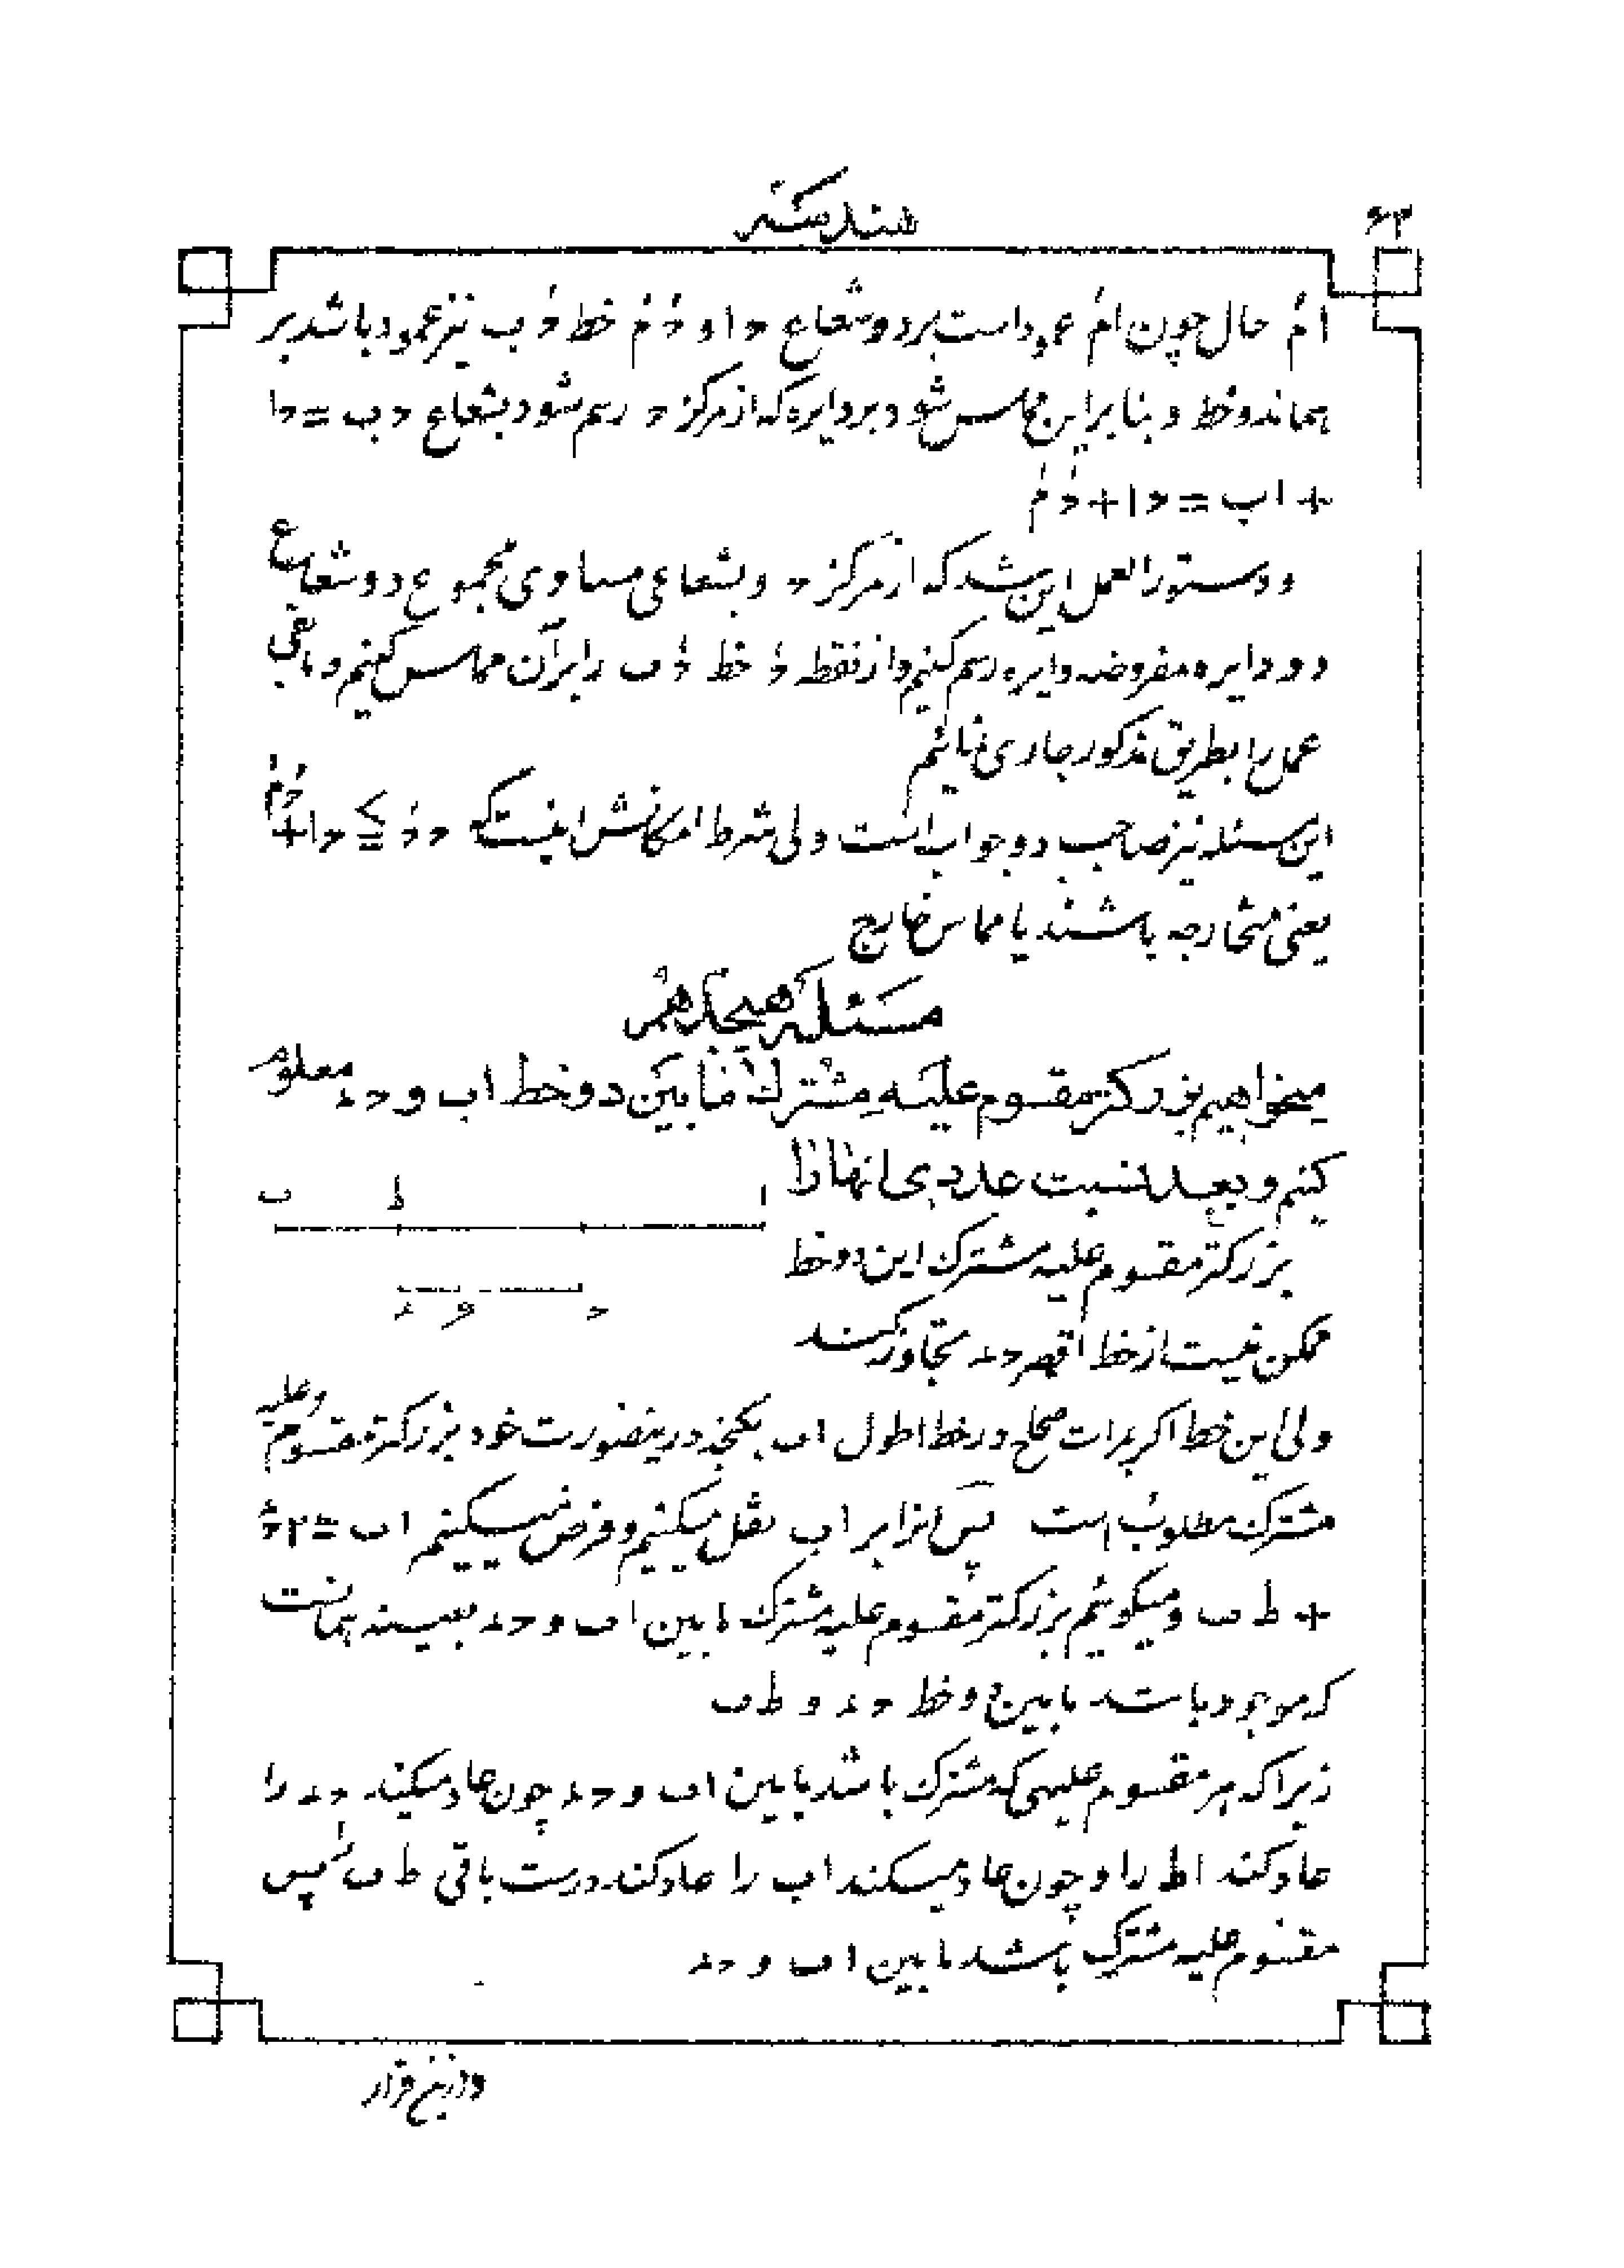 ۶۲
هندسه
امَ حال چون امَ عمود است بر دو شعاع حا و حَمَ خط حَب نیز عمود باشد بر
همان دو خط و بنا بر این مماس شود بر دایره که از مرکز ح رسم شود بشعاع حب = حا
+ اب = حا + حَمَ
و دستور العمل این شد که از مرکز ح و بشعاعی مساوی مجموع دو شعاع
دو دایره مفروضه دایره رسم کنیم و از نقطه حَ خط حَب را بر آن مماس کنیم و باقی
عمل را بطریق مذکور جاری نمائیم
این مسئله نیز صاحب دو جواب است ولی شرط امکانش اینست که ححَ ≥ حا + حَمَ
یعنی متخارجه باشند یا مماس خارج
مسئله هیجدهم
میخواهیم بزرکتر مقسوم علیه مشترك مابین دو خط اب و حد معلوم
کنیم و بعد نسبت عددی آنها را
ا ط ب
بزرکتر مقسوم علیه مشترك این دو خط
ح د
ممکن نیست از خط اقصر حد تجاوز کند
ولی این خط اکر بمرات صحاح در خط اطول اب بکنجد در اینصورت خود بزرکتر مقسوم علیه
مشترك مطلوب است پس انرا بر اب نقل میکنیم و فرض میکنیم اب = ۲حد
+ ط ب و میکوئیم بزرکتر مقسوم علیه مشترك مابین اب و حد بعینه همانست
که موجود باشد مابین دو خط حد و ط ب
زیرا که هر مقسوم علیهی که مشترك باشد مابین اب و حد چون عاد میکند حد را
عاد کند اط را و چون عاد میکند اب را عاد کند درست باقی ط ب را پس
مقسوم علیه مشترك باشد مابین اب و حد